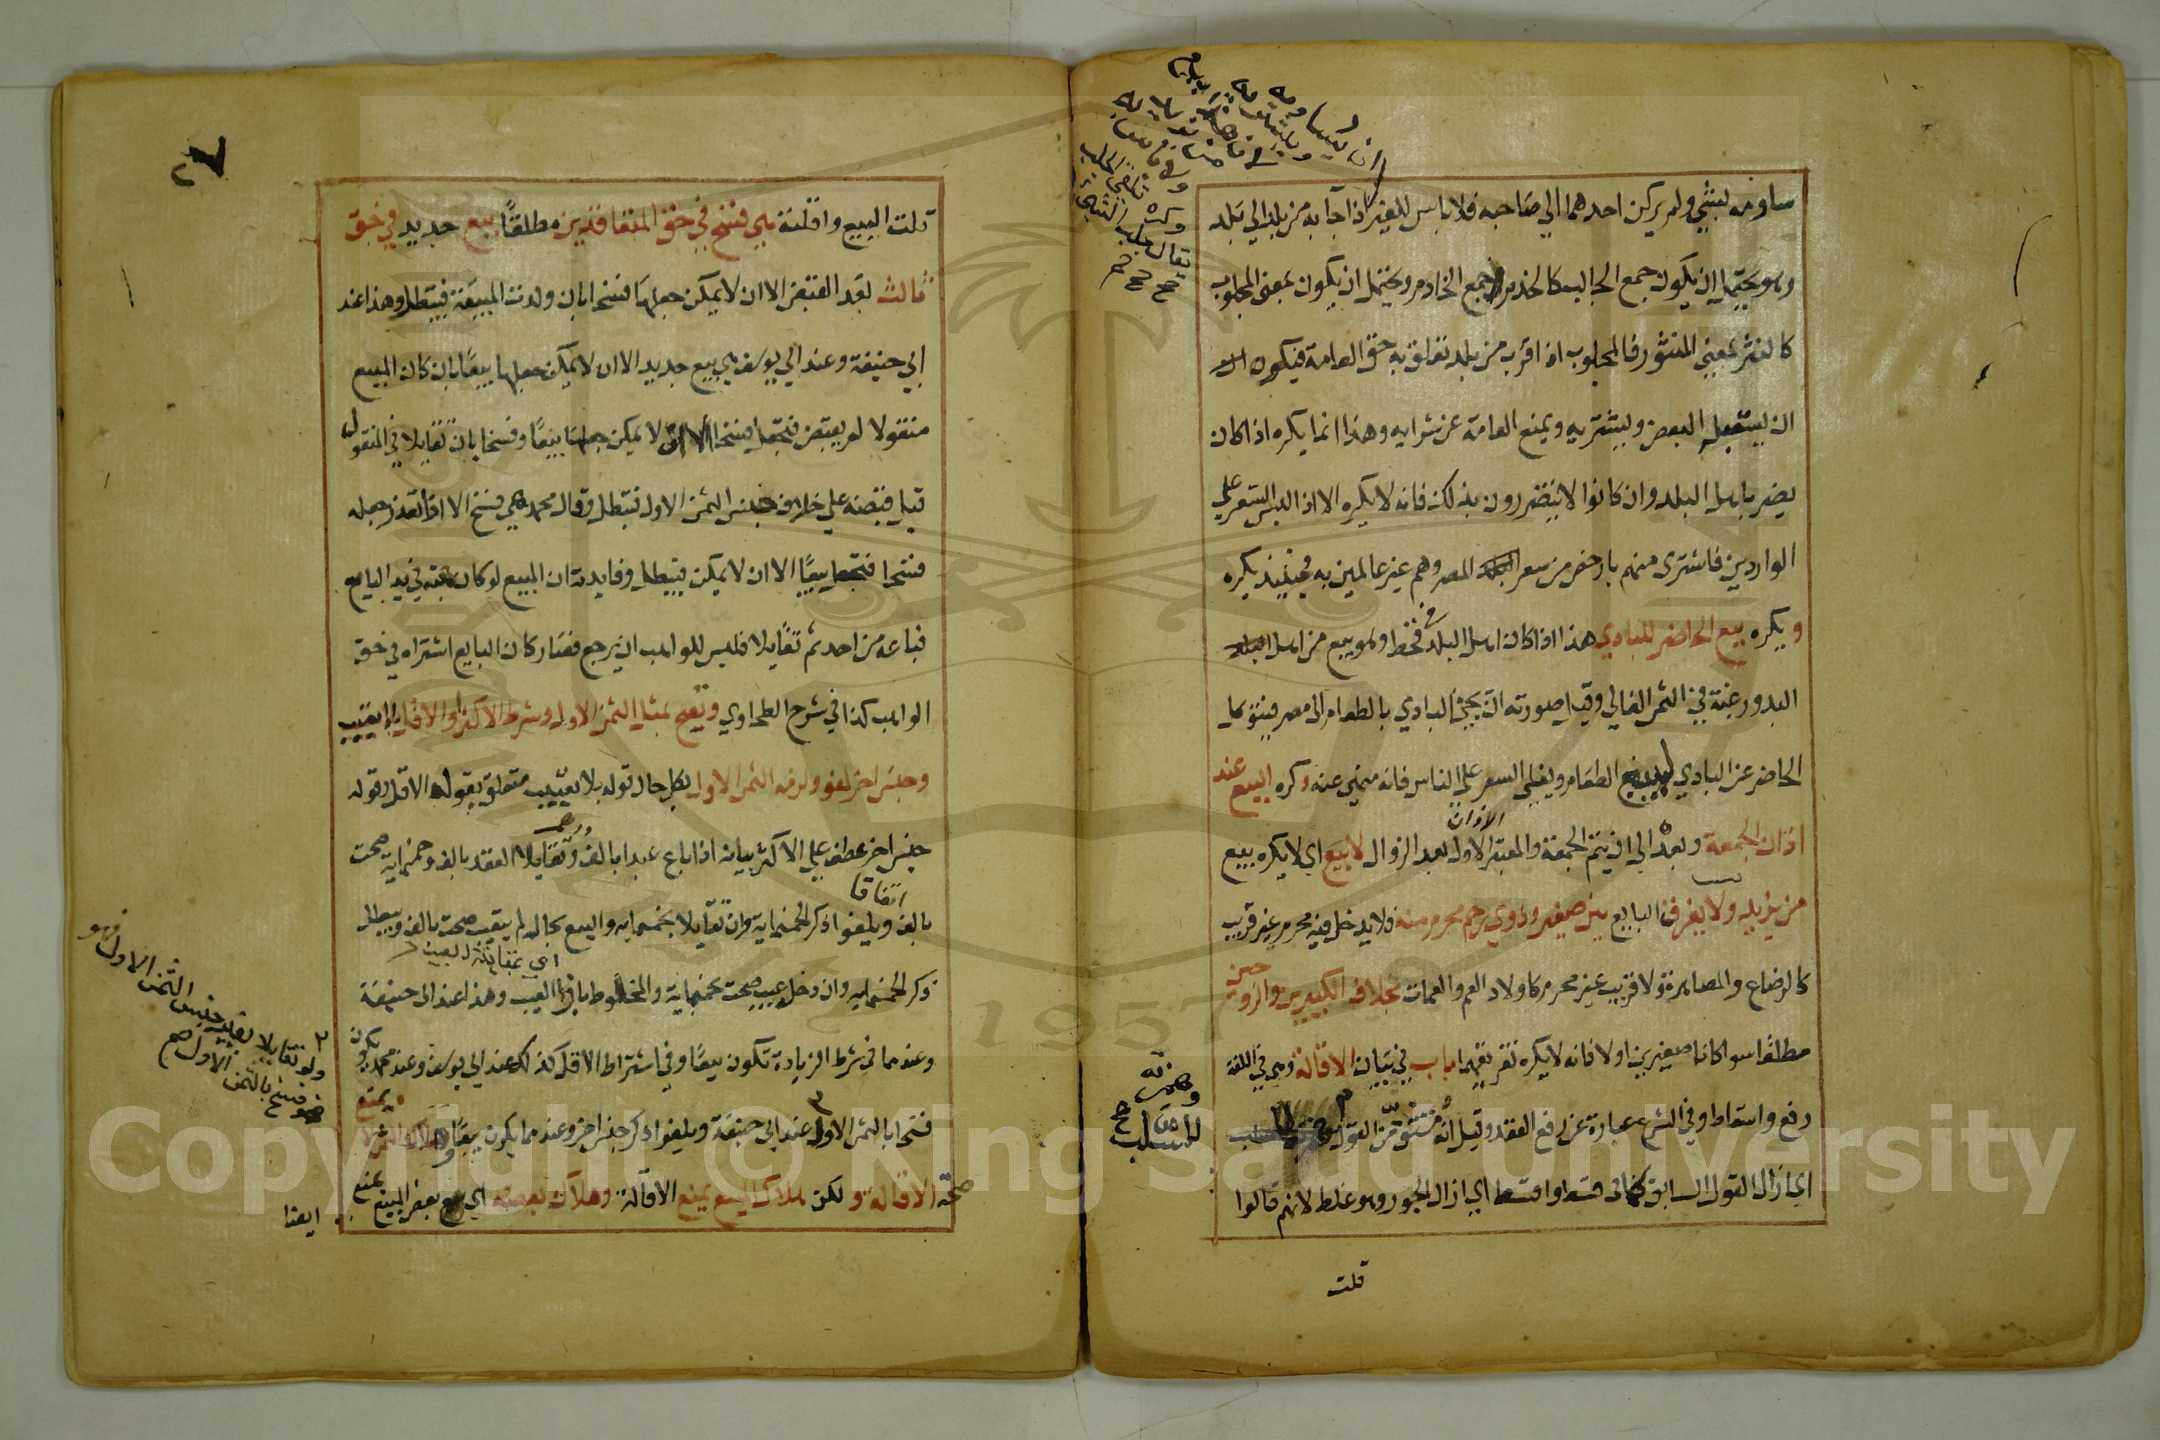 ساومه بشي ولم يركن احدهما الي صاحبه فلا باس للغير اذا جا به من بلد الي بلد
وهو يحتمل ان يكون جمع الجالب كالخدم جمع الخادم ويحتمل ان يكون بمعني المجلوب
كالنشر بمعني المنشور فالمجلوب اذا قرب من بلد تعلق به حق العامة فيكره
ان يستقبله البعض ويشتريه ويمنع العامة عن شرايه وهذا انما يكره اذا كان
يضر باهل البلد وان كانوا لا يتضررون بذلك فانه لا يكره الا اذا لبس السعر علي
الواردين فاشتري منهم بارخص من سعر المصر وهم غير عالمين به فحينيذ يكره
ويكره بيع الحاضر للبادي هذا اذا كان اهل البلد في قحط وهو يبيع من اهل
البدو رغبة في الثمن الغالي وقيل صورته ان يجي البادي بالطعام الي مصر فيتوكل
الحاضر عن البادي ليبيع الطعام ويغلي السعر علي الناس فانه منهي عنه وكره البيع عند
اذان الجمعة وبعده الي ان يتم الجمعة والمعتبر الاول بعد الزوال لا بيع اي لا يكره بيع
الاذان
من يزيد ولا يفرق البايع بين صغير وذوي رحم محرم منه فلا يدخل فيه محرم غير قريب
كالرضاع والمصاهرة ولا قريب غير محرم كاولاد العم والعمات بخلاف الكبيرين والزوجين
مطلقا سوا كانا صغيرين اولا فانه لا يكره تفريقهما باب في بيان الاقالة وهي في اللغة
رفع واسقاط وفي الشرع عبارة عن رفع العقد وقيل انه مشتق من القول
اي ازال القول السابق كما في قسط واقسط اي ازال الجور وهو غلط لانهم قالوا
قلت
وهمزته
للسلب
٢٧
قلت البيع واقلته هي فسخ في حق المتعاقدين مطلقا بيع جديد في حق
ثالث بعد القبض الا ان لا يمكن جعلها فسخا بان ولدت المبيعة فيبطل وهذا عند
ابي حنيفة وعند ابي يوسف هي بيع جديد الا ان لا يمكن جعلها بيعا بان كان المبيع
منقولا لم يقبض فتجعل فسخا الا ان لا يمكن جعلها بيعا وفسخا بان تقايلا في المنقول
قبل قبضه علي خلاف جنس الثمن الاول فتبطل وقال محمد هي فسخ الا اذا تعذر جعله
فسخا فتجعل بيعا الا ان لا يمكن فيبطل وفايدته ان المبيع لو كان هبة في يد البايع
فباعه من احد ثم تقايلا فليس للواهب ان يرجع فصار كان البايع اشتراه في حق
الواهب كذا في شرح الطحاوي وتصح بمثل الثمن الاول وشرط الاكثر او الاقل بلا تعييب
وجنس اخر لغو ولزمه الثمن الاول بكل حال قوله بلا تعييب متعلق بقوله الاقل وقوله
جنس اخر عطف علي الاكثر بيانه اذا باع عبدا بالف درهم وتقايلا العقد بالف وخمسماية صحت
اتفاقا
بالف ويلغو اذكر الخمسماية وان تقايلا بخمسماية والبيع بحاله لم يتعيب صحت بالف ويبطل
اي بمقابلة العيب
ذكر الخمسماية وان دخله عيب صحت بخمسماية والمحطوط بازا العيب وهذا عند ابي حنيفة
وعندهما في شرط الزيادة تكون بيعا وفي اشتراط الاقل كذلك عند ابي يوسف وعند محمد يكون
فسخا بالثمن الاول عند ابي حنيفة ويلغو اذكر جنس اخر وعندهما يكون بيعا
صحة الاقالة ولكن هلاك المبيع يمنع الاقالة وهلاك بعضه اي بعض المبيع يمنع
ايضا
ولو تقايلا بغير جنس الثمن الاول فهو
فسخ بالثمن الاول صح
Copyright © King Saud University
1957